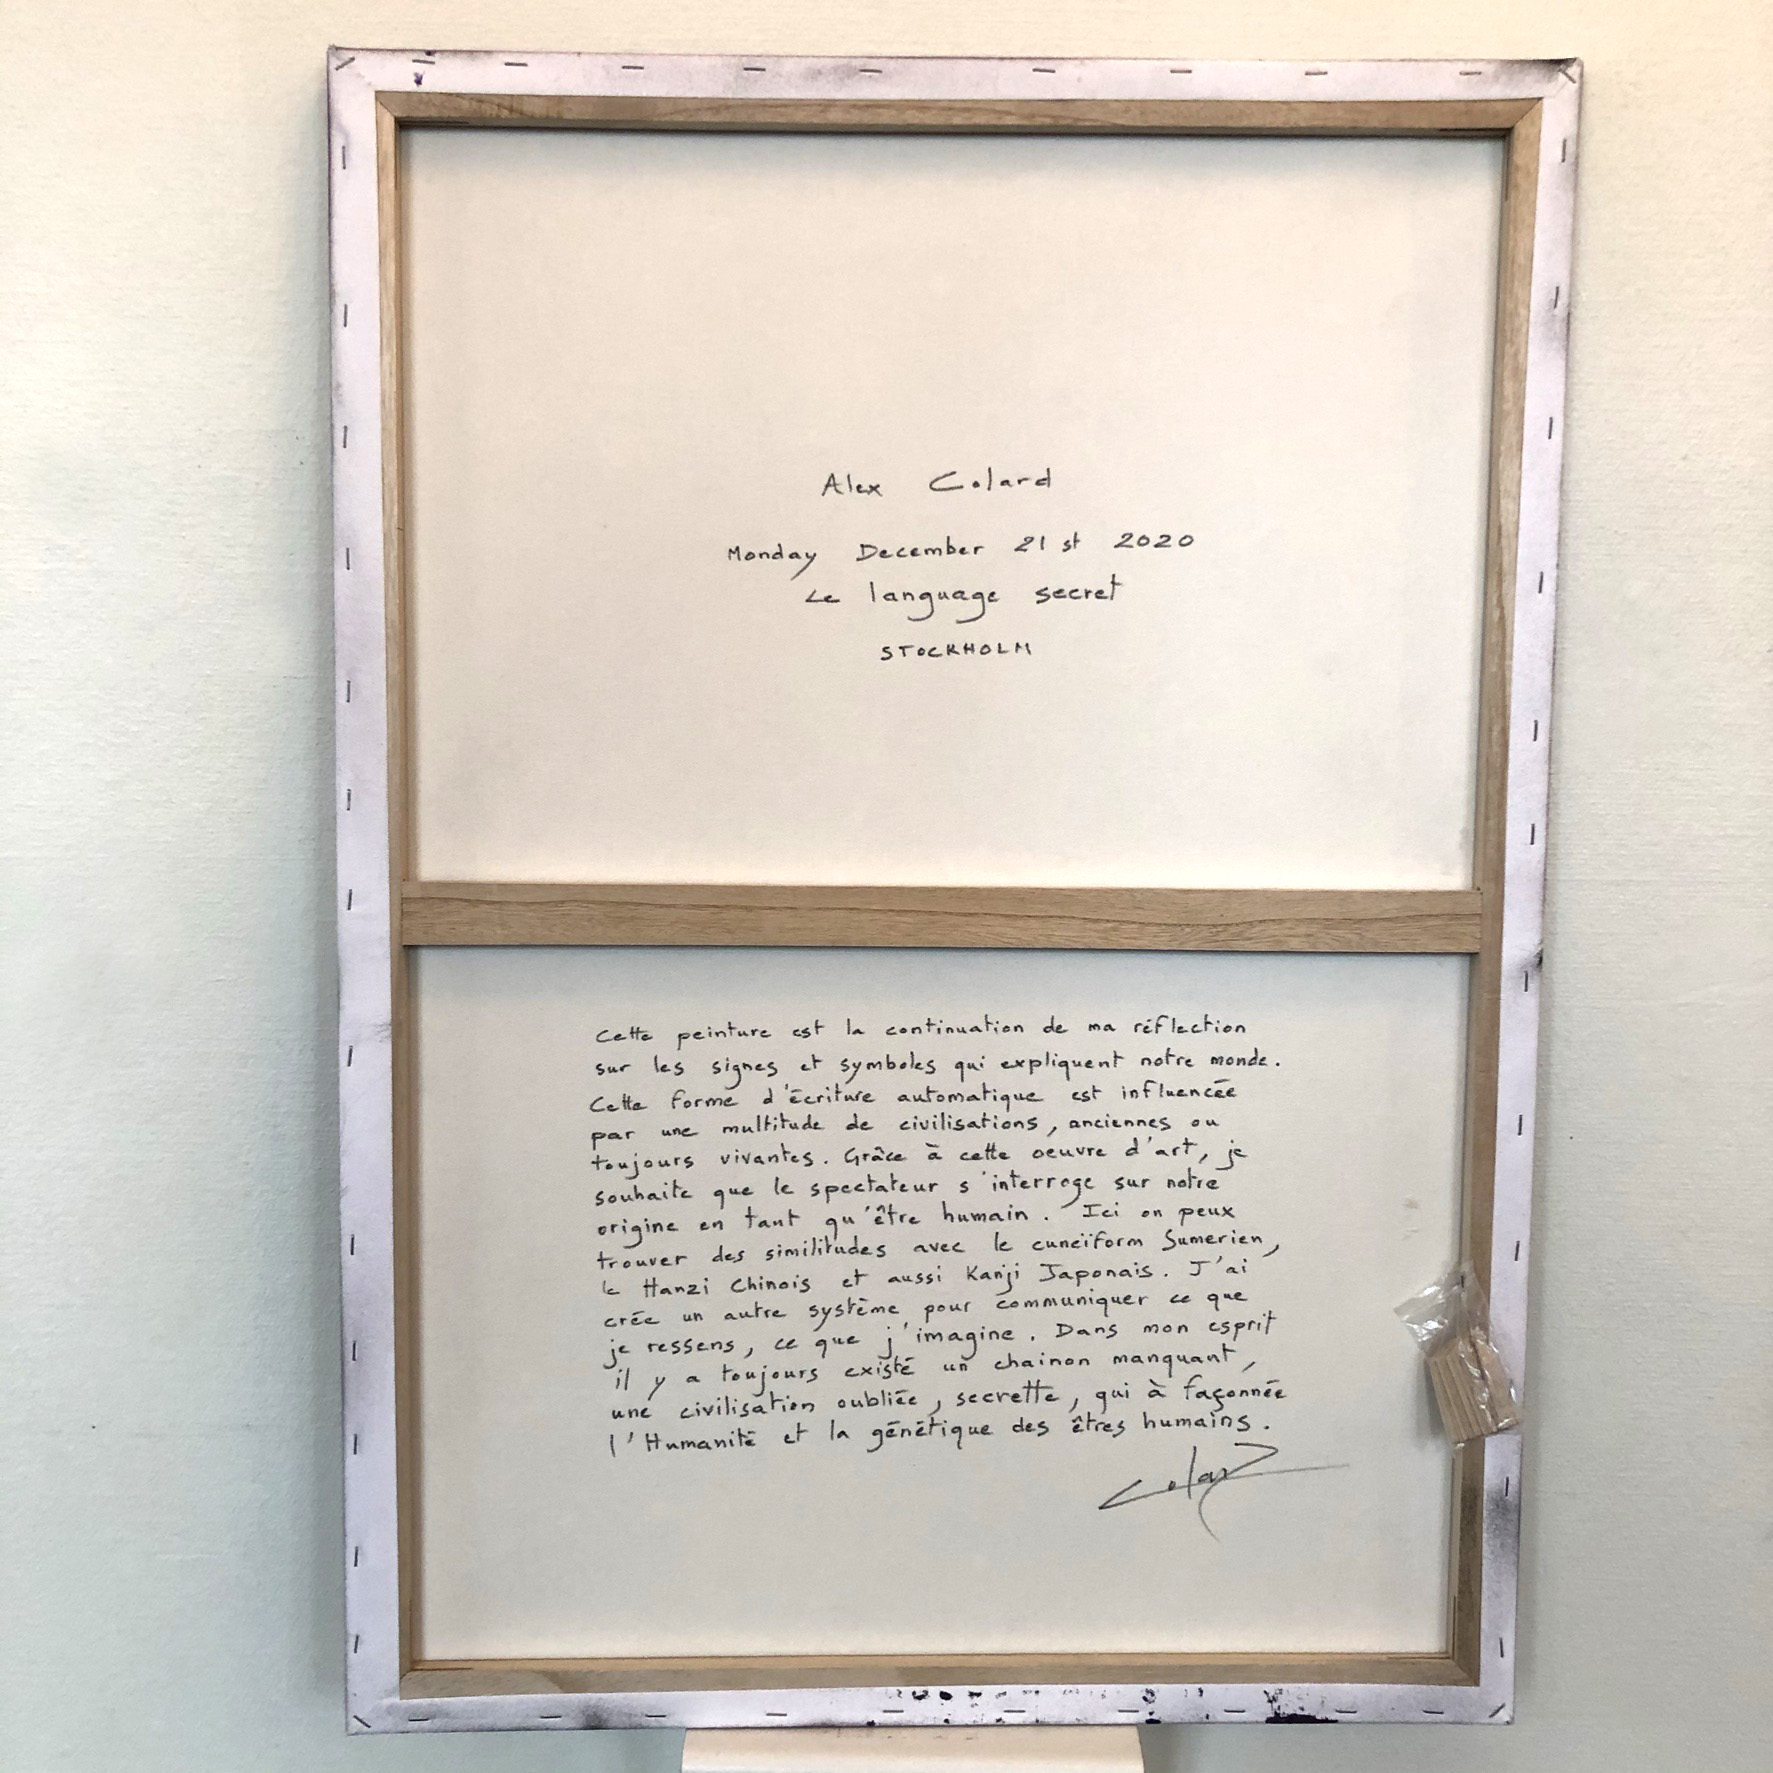 Alex Colard
Monday December 21st 2020
Le language secret
STOCKHOLM
Cette peinture est la continuation de ma réflection
sur les signes et symboles qui expliquent notre monde.
Cette forme d'écriture automatique est influencée
par une multitude de civilisations, anciennes ou
toujours vivantes. Grâce à cette oeuvre d'art, je
souhaite que le spectateur s'interroge sur notre
origine en tant qu'être humain. Ici on peux
trouver des similitudes avec le cuneïform Sumerien,
le Hanzi Chinois et aussi Kanji Japonais. J'ai
crée un autre système pour communiquer ce que
je ressens, ce que j'imagine. Dans mon esprit
il y a toujours existé un chainon manquant,
une civilisation oubliée, secrette, qui à façonnée
l'Humanité et la génétique des êtres humains.
Colard